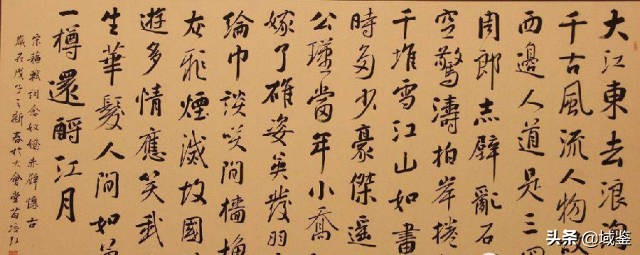 大江東去浪淘
千古風流人物故
西邊人道是三國
周郎赤壁亂石
空驚濤拍岸捲
千堆雪江山如畫
時多少豪傑遥
公瑾當年小喬
嫁了雄姿英發羽
綸巾談笑間檣櫓
灰飛煙滅故國
遊多情應笑我
生華髮人間如
一樽還酹江月
宋蘇軾詞念奴嬌赤壁懷古
歲在戊子之新春於大會堂
头条 @域鉴